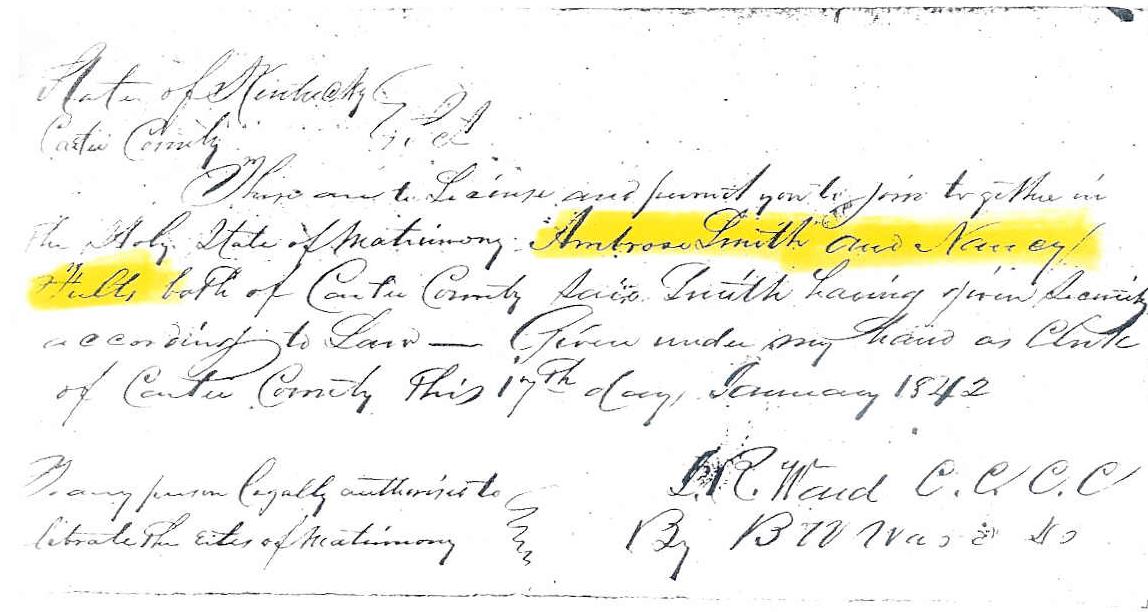 State of Kentucky
Carter County Sct
These are to License and permit you to join together in
the Holy State of Matrimony Ambrose Smith and Nancy
both of Carter County said Smith having given Security
according to Law — Given under my hand as Clerk
of Carter County this 17th day January 1842
To any person legally authorised to
librate the rites of Matrimony
R. Ward C.C.C.C
By B W Ward